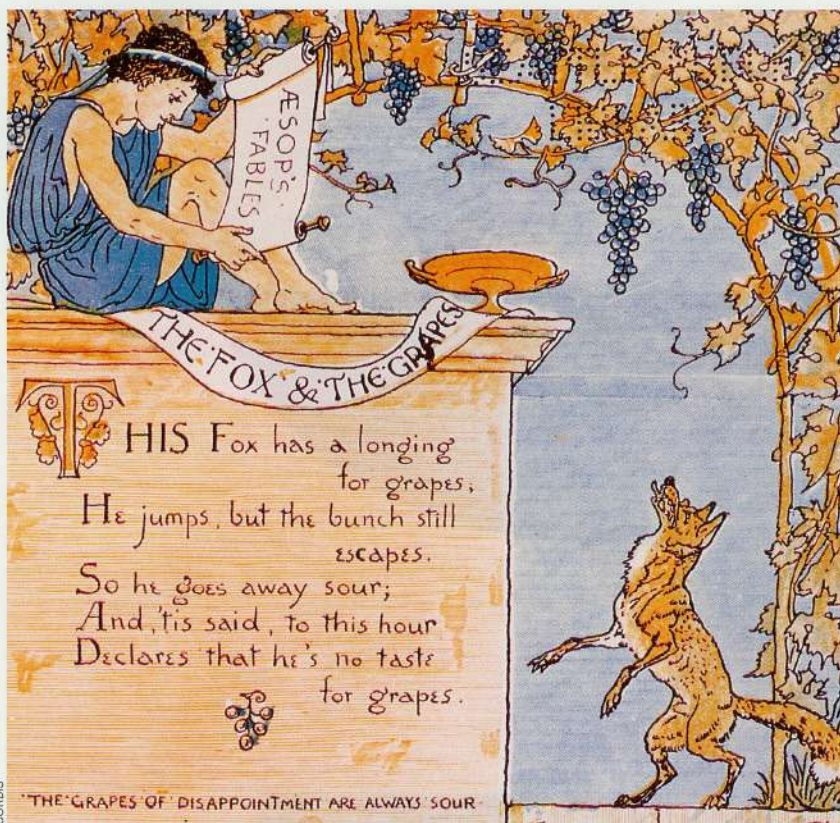 ÆSOP'S·
·FABLES
THE·FOX·&·THE·GRAPES
THIS Fox has a longing
for grapes,
He jumps, but the bunch still
escapes.
So he goes away sour;
And, 'tis said, to this hour
Declares that he's no taste
for grapes.
·THE·GRAPES·OF·DISAPPOINTMENT·ARE·ALWAYS·SOUR·